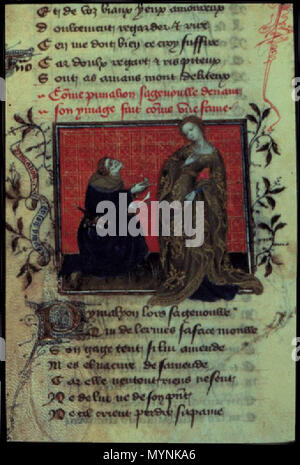 Et de voz biaux yeux amoureux
Doulcement regarder et rire
Ce me doit bien ce croy suffire
Car doulx regart et ris piteux
Sont as amans mont deliteux
Come pimalion sagenoille devant
son ymage faint come une feme
Pymalion lors sagenoulle
Qui de lermes sa face moulle
Son gage tent si lui amende
Mes el na cure de samende
Car elle nentent riens ne sent
Ne de lui ne de son present
alamy
Image ID: MYNKA6
www.alamy.com